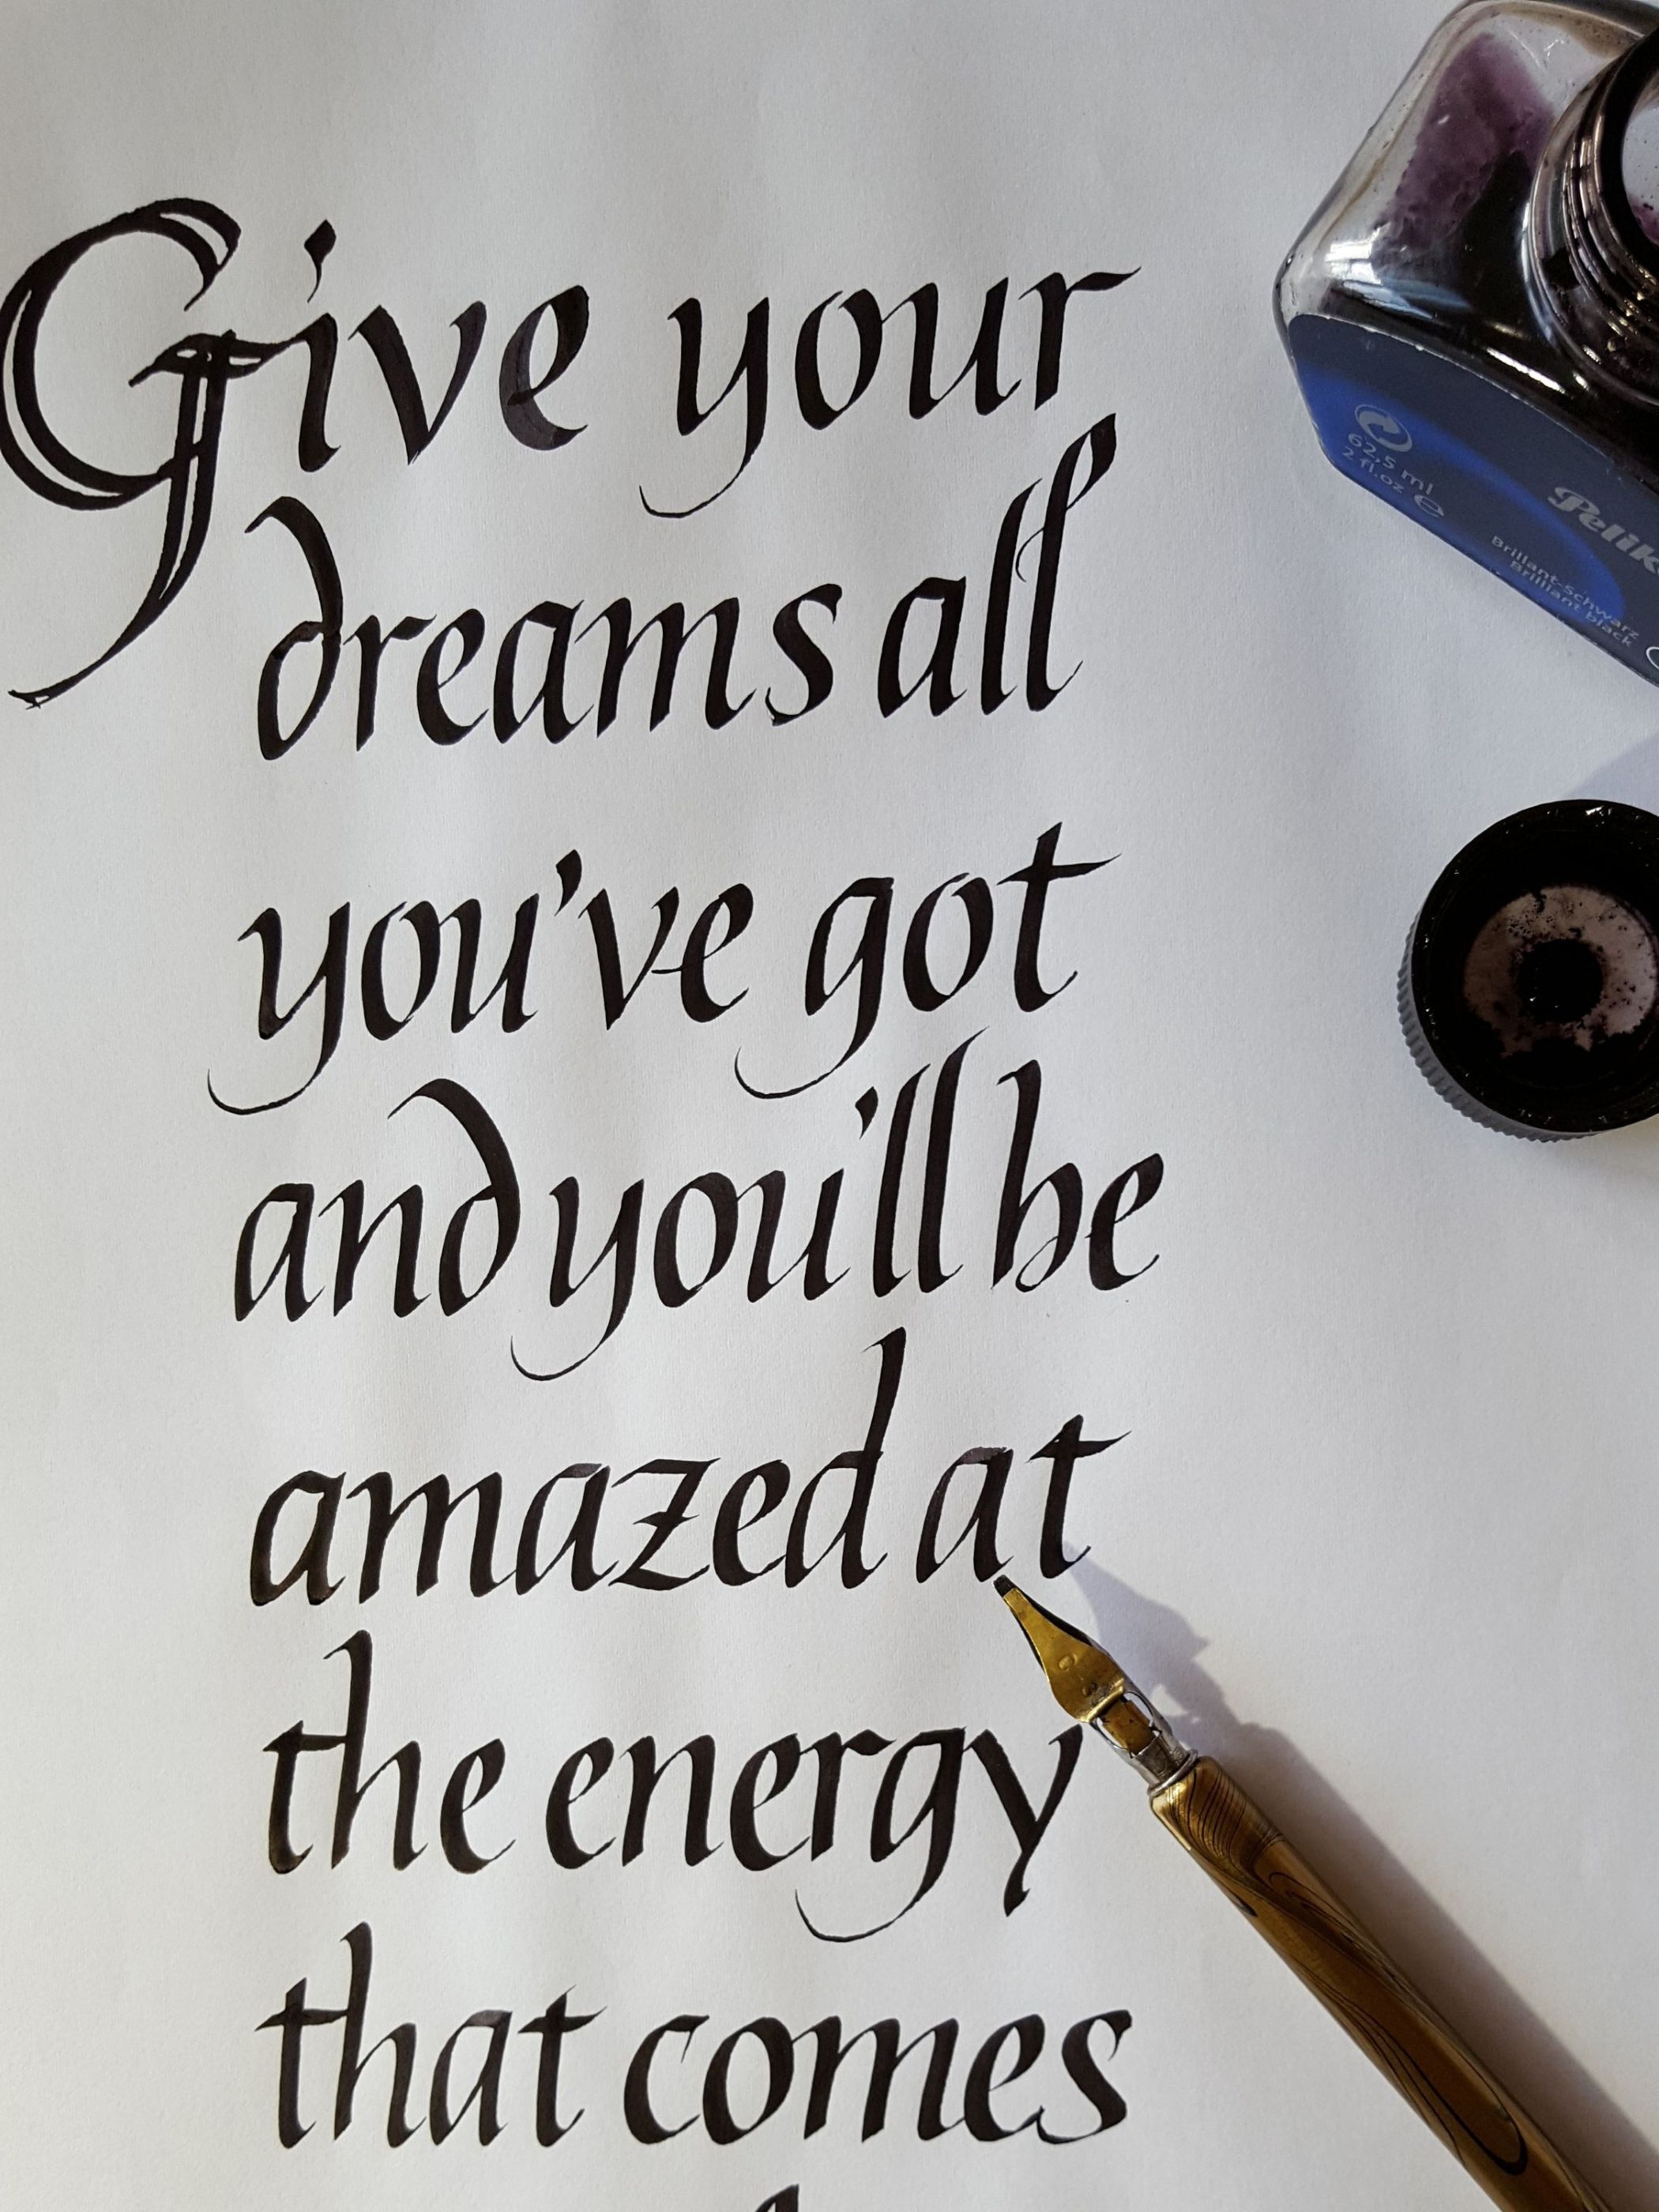 Give your
dreams all
you've got
and you'll be
amazed at
the energy
that comes
62,5 ml
2 fl.oz e
Pelik
Brillant-schwarz
Brilliant black